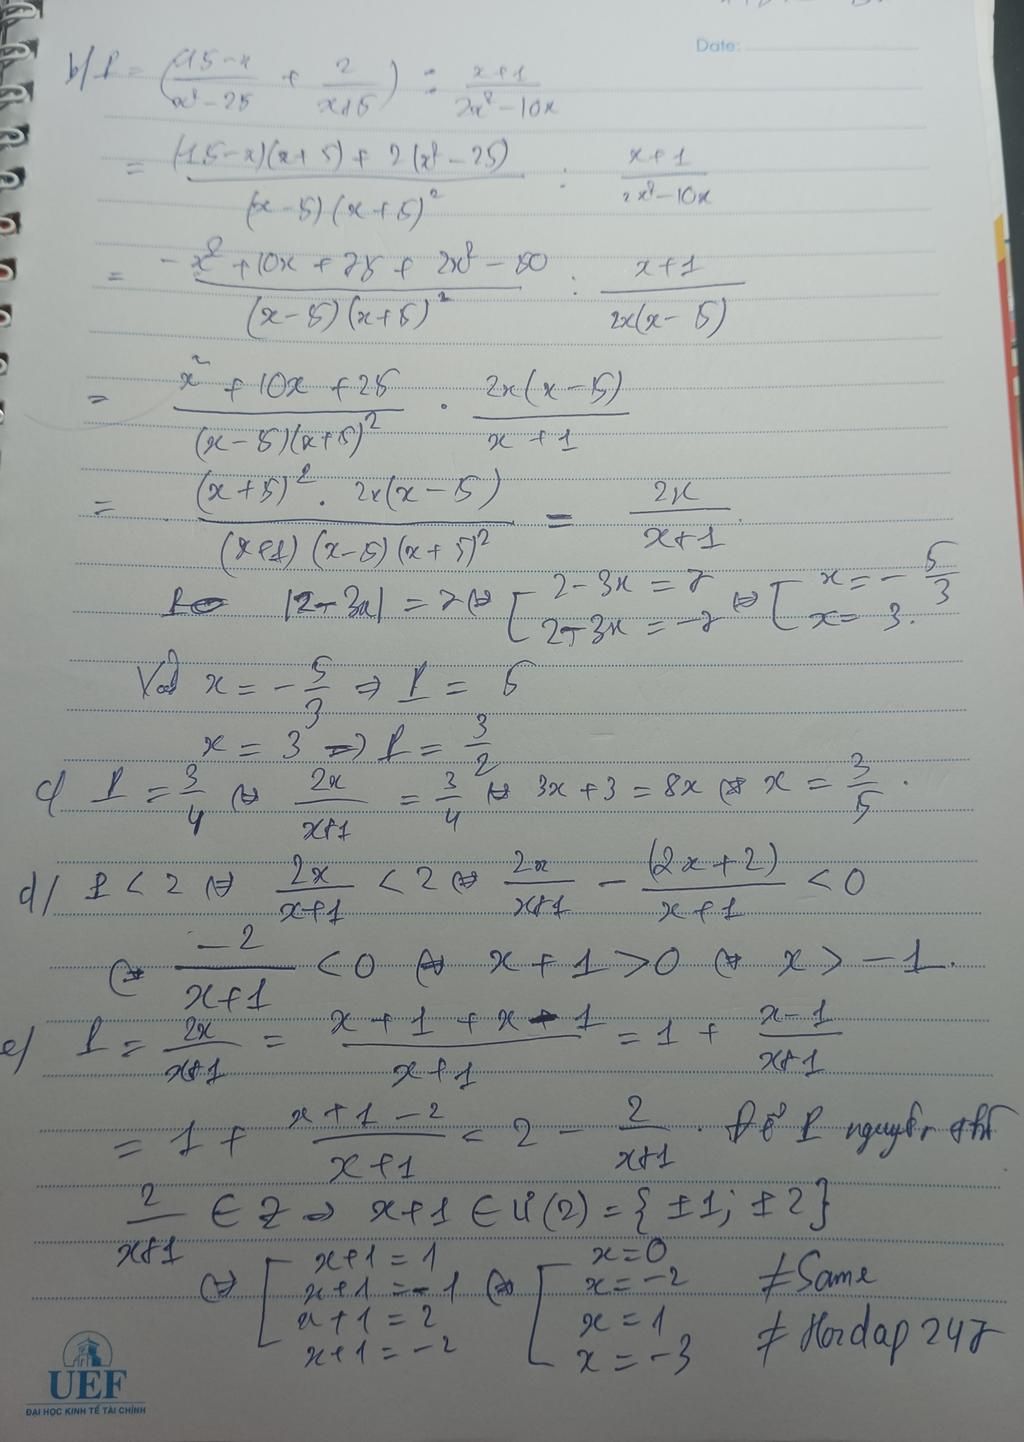 Date:
b/ P = (15-x/x²-25 + 2/x+5) : x+1/2x²-10x
= (15-x)(x+5) + 2(x²-25)/(x-5)(x+5)² : x+1/2x²-10x
= -x²+10x+75+2x²-50/(x-5)(x+5)² : x+1/2x(x-5)
= x²+10x+25/(x-5)(x+5)² . 2x(x-5)/x+1
= (x+5)². 2x(x-5)/(x+1)(x-5)(x+5)² = 2x/x+1.
|2-3x| = 7 ⇔ [2-3x = 7; 2-3x = -7 ⇔ [x = -5/3; x = 3.
Với x = -5/3 ⇒ P = 5
x = 3 ⇒ P = 3/2
c/ P = 3/4 ⇔ 2x/x+1 = 3/4 ⇔ 3x+3 = 8x ⇔ x = 3/5.
d/ P < 2 ⇔ 2x/x+1 < 2 ⇔ 2x/x+1 - (2x+2)/x+1 < 0
⇔ -2/x+1 < 0 ⇔ x+1 > 0 ⇔ x > -1.
e/ P = 2x/x+1 = x+1+x-1/x+1 = 1 + x-1/x+1
= 1 + x+1-2/x+1 = 2 - 2/x+1. Để P nguyên thì
2/x+1 ∈ Z ⇒ x+1 ∈ Ư(2) = {±1; ±2}
⇔ [x+1=1; x+1=-1; x+1=2; x+1=-2 ⇔ [x=0; x=-2; x=1; x=-3
≠Same
≠Hoidap247
UEF
ĐẠI HỌC KINH TẾ TÀI CHÍNH